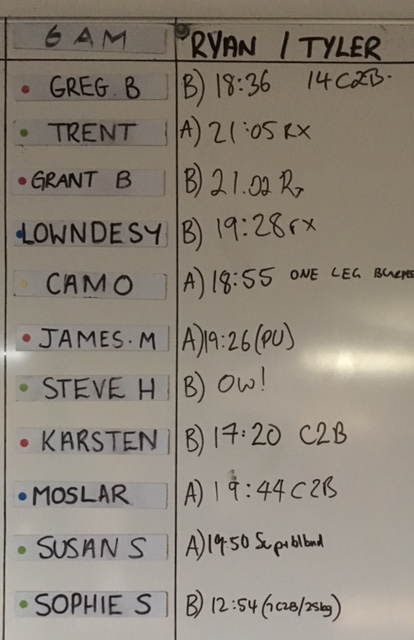 6 AM RYAN / TYLER
GREG. B B) 18:36 14 C2B.
TRENT A) 21:05 RX
GRANT B B) 21.02 Rx
LOWNDESY B) 19:28 rx
CAMO A) 18:55 ONE LEG
JAMES. M A) 19:26 (PU)
STEVE H B) OW!
KARSTEN B) 17:20 C2B
MOSLAR A) 19:44 C2B
SUSAN S A) 19:50
SOPHIE S B) 12:54 (7C2B/25kg)